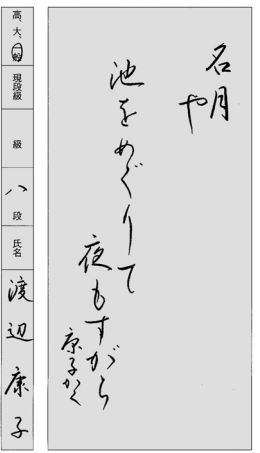 名月
や
池をめぐりて
夜もすがら
康子かく
高、大、一般
現段級
級
八段
氏名
渡辺康子